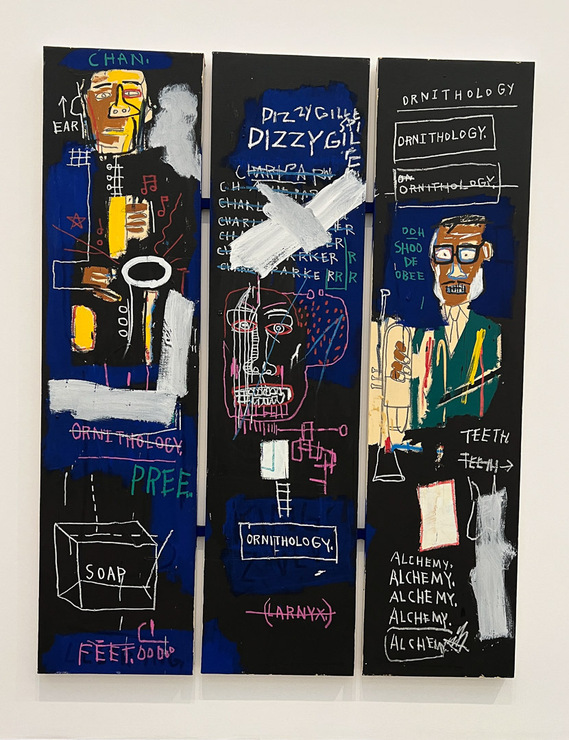 CHAN.
EAR
ORNITHOLOGY.
PREE.
SOAP
FEET.
DIZZYGILLESPI
DIZZYGIL
CHARLPA
CH
CHARL
CHARLI ER
CH ARKER
CHARLE PARKER
CHARLES PARKERRR
ORNITHOLOGY.
(LARNYX)
ORNITHOLOGY
ORNITHOLOGY.
ORNITHOLOGY.
OOH
SHOO
DE
OBEE
TEETH
TEETH→
ALCHEMY,
ALCHEMY.
ALCHEMY.
ALCHEMY.
ALCHEM